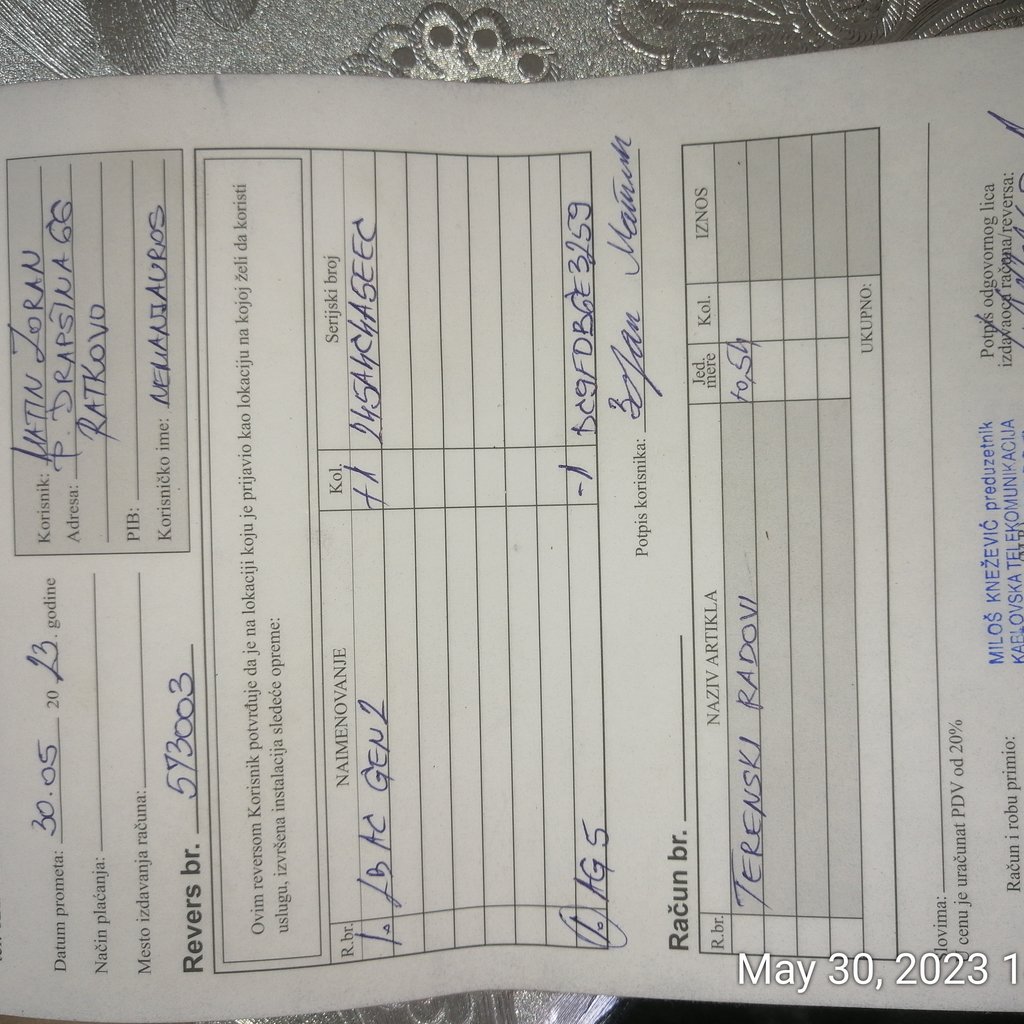 Datum prometa: 30.05 2023. godine
Način plaćanja:
Mesto izdavanja računa:
Korisnik: MATIN ZORAN
Adresa: P. DRAPŠINA 66
RATKOVO
PIB:
Korisničko ime: NEMANJAUROS
Revers br. 573003
Ovim reversom Korisnik potvrđuje da je na lokaciji koju je prijavio kao lokaciju na kojoj želi da koristi
uslugu, izvršena instalacija sledeće opreme:
R.br. NAIMENOVANJE Kol. Serijski broj
1. LBAC GEN2 +1 245A4C4A5EEC
AG5 -1 DC9FDBGE3259
Potpis korisnika: Зоран Матин
Račun br.
R.br. NAZIV ARTIKLA Jed. mere Kol. IZNOS
TERENSKI RADOVI 10,54
UKUPNO:
Slovima:
U cenu je uračunat PDV od 20%
Račun i robu primio:
MILOŠ KNEŽEVIĆ preduzetnik
KABLOVSKA TELEKOMUNIKACIJA
Potpis odgovornog lica
izdavaoca računa/reversa:
May 30, 2023 1